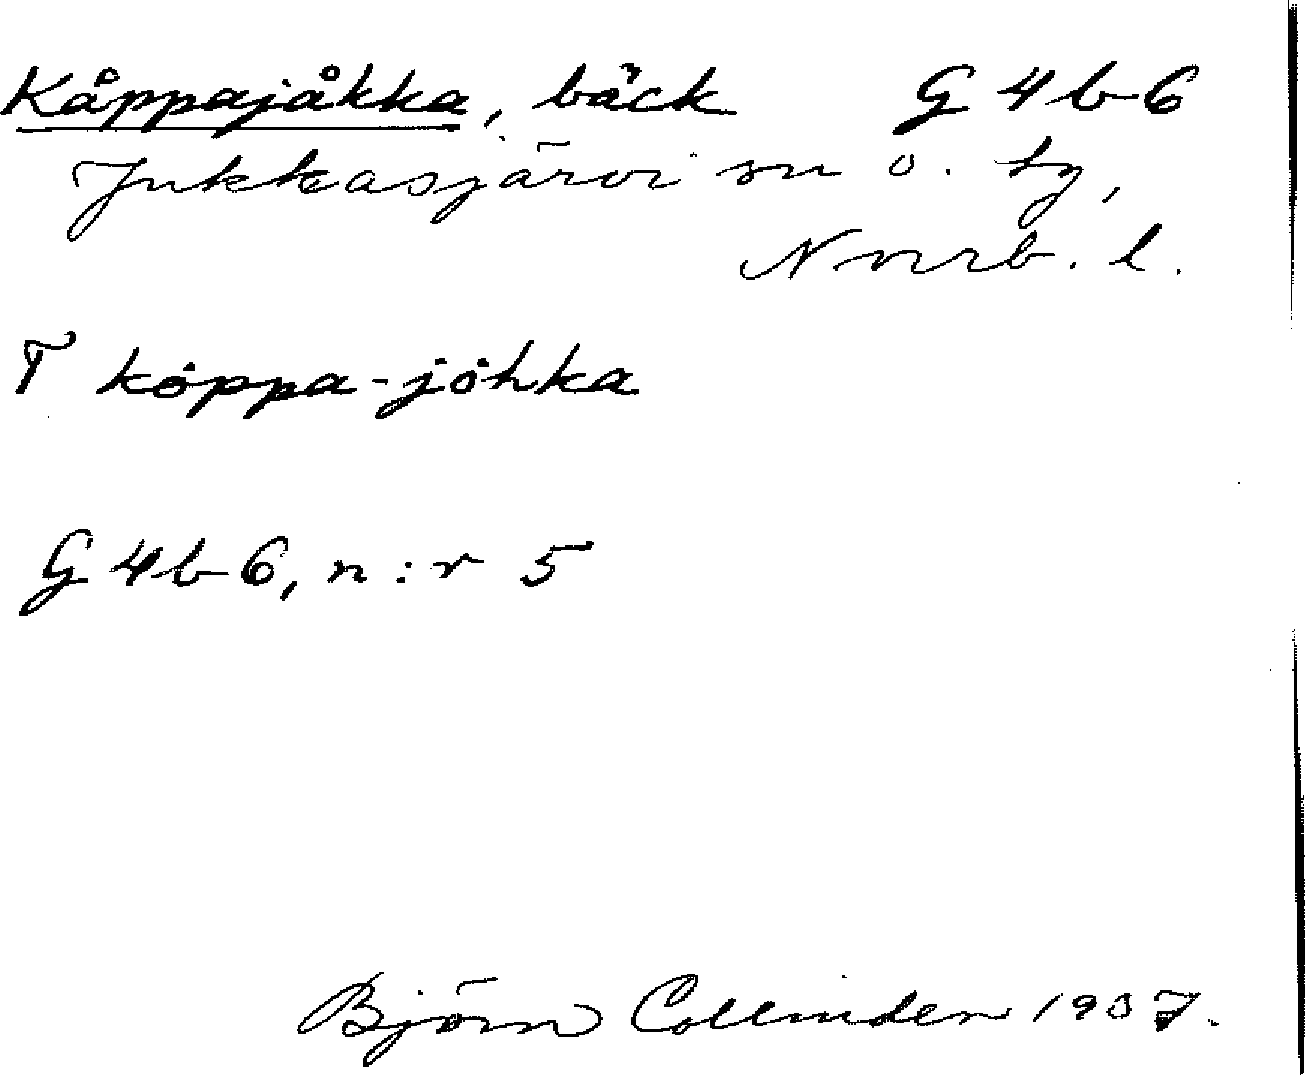 Kåppajåkka, bäck G 4 b 6
Jukkasjärvi sn o. tg,
Norrb. l.
T kȯppa-jȯhka
G 4 b 6, n:r 5
Björn Collinder 1937.